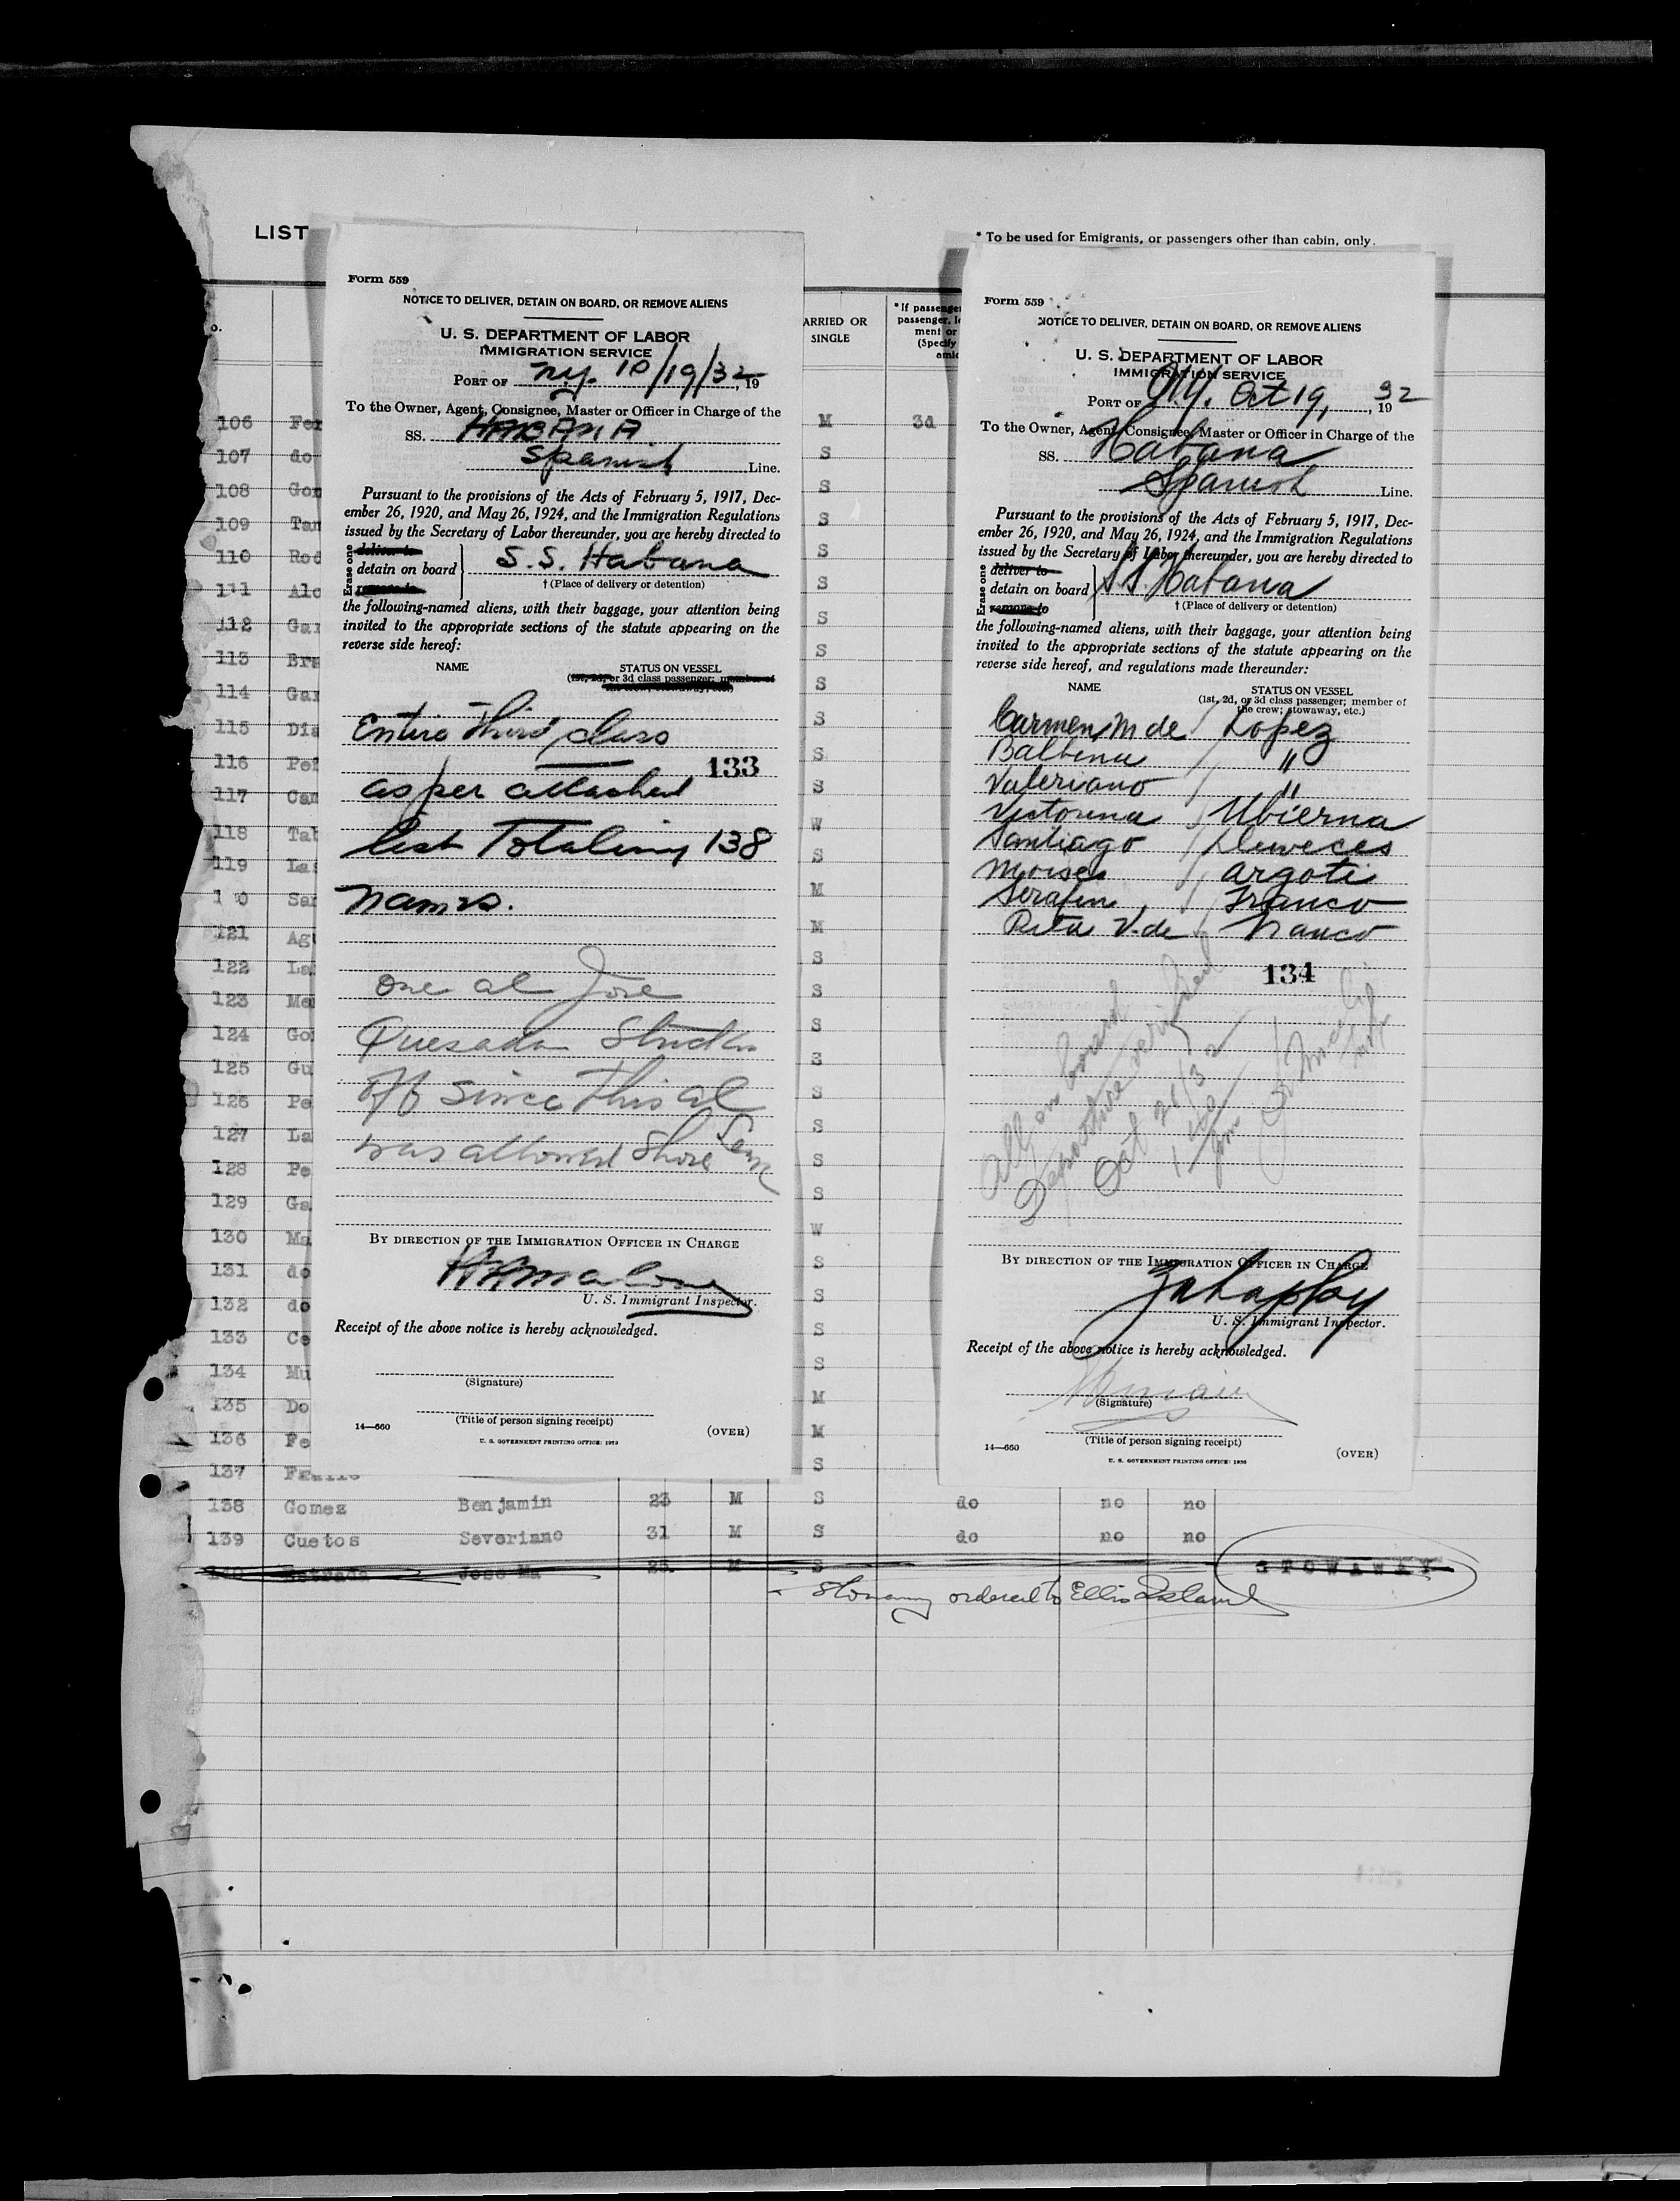 LIST
* To be used for Emigrants, or passengers other than cabin, only.
Form 559
NOTICE TO DELIVER, DETAIN ON BOARD, OR REMOVE ALIENS
U. S. DEPARTMENT OF LABOR
IMMIGRATION SERVICE
PORT OF N.Y. 10/19/32, 19
To the Owner, Agent, Consignee, Master or Officer in Charge of the
SS. HABANA
Spanish Line.
Pursuant to the provisions of the Acts of February 5, 1917, Dec-
ember 26, 1920, and May 26, 1924, and the Immigration Regulations
issued by the Secretary of Labor thereunder, you are hereby directed to
Erase one
deliver to
detain on board S.S. Habana
remove to
† (Place of delivery or detention)
the following-named aliens, with their baggage, your attention being
invited to the appropriate sections of the statute appearing on the
reverse side hereof:
NAME STATUS ON VESSEL
(1st, 2d, or 3d class passenger; member of
the crew; stowaway, etc.)
Entire Third class
133
as per attached
list Totaling 138
names.
one al Jose
Quesada Struck
off since this al
was allowed Shore
BY DIRECTION OF THE IMMIGRATION OFFICER IN CHARGE
U. S. Immigrant Inspector.
Receipt of the above notice is hereby acknowledged.
(Signature)
(Title of person signing receipt)
14—660 (OVER)
U. S. GOVERNMENT PRINTING OFFICE:
Form 559
NOTICE TO DELIVER, DETAIN ON BOARD, OR REMOVE ALIENS
U. S. DEPARTMENT OF LABOR
IMMIGRATION SERVICE
PORT OF N.Y. Oct 19, , 1932
To the Owner, Agent, Consignee, Master or Officer in Charge of the
SS. Habana
Spanish Line.
Pursuant to the provisions of the Acts of February 5, 1917, Dec-
ember 26, 1920, and May 26, 1924, and the Immigration Regulations
issued by the Secretary of Labor thereunder, you are hereby directed to
Erase one
deliver to
detain on board S.S. Habana
remove to
† (Place of delivery or detention)
the following-named aliens, with their baggage, your attention being
invited to the appropriate sections of the statute appearing on the
reverse side hereof, and regulations made thereunder:
NAME STATUS ON VESSEL
(1st, 2d, or 3d class passenger; member of
the crew; stowaway, etc.)
Carmen M de / Lopez
Balbina / "
Valeriano / "
Victorina / Ubierna
Santiago /
Moises / Argote
Serafin / Franco
Rita V. de Franco
134
All on board
Departure verified
Oct 21/32
BY DIRECTION OF THE IMMIGRATION OFFICER IN CHARGE
U. S. Immigrant Inspector.
Receipt of the above notice is hereby acknowledged.
(Signature)
(Title of person signing receipt)
14—660 (OVER)
U. S. GOVERNMENT PRINTING OFFICE: 1930
ARRIED OR
SINGLE
* If passenge
passenger, l
ment or
(Specify
amid
106 Fer M 3d
107 do S
108 Gon S
109 Tam S
110 Rod S
111 Alo S
112 Gar S
113 Bra S
114 Gar S
115 Dia S
116 S
117 S
118 Tab W
119 Las S
1 0 San M
121 Ag M
122 La S
123 Me S
124 Go S
125 Gu S
126 Pe S
127 La S
128 Pe S
129 Ga S
130 Ma W
131 do S
132 do S
133 Ce S
134 Mu S
135 Do M
136 Fe M
137 S
138 Gomez Benjamin 23 M S do no no
139 Cuetos Severiano 31 M S do no no
140 Estrada Jose Ma 25 M S STOWAWAY
Stowaway ordered to Ellis Island